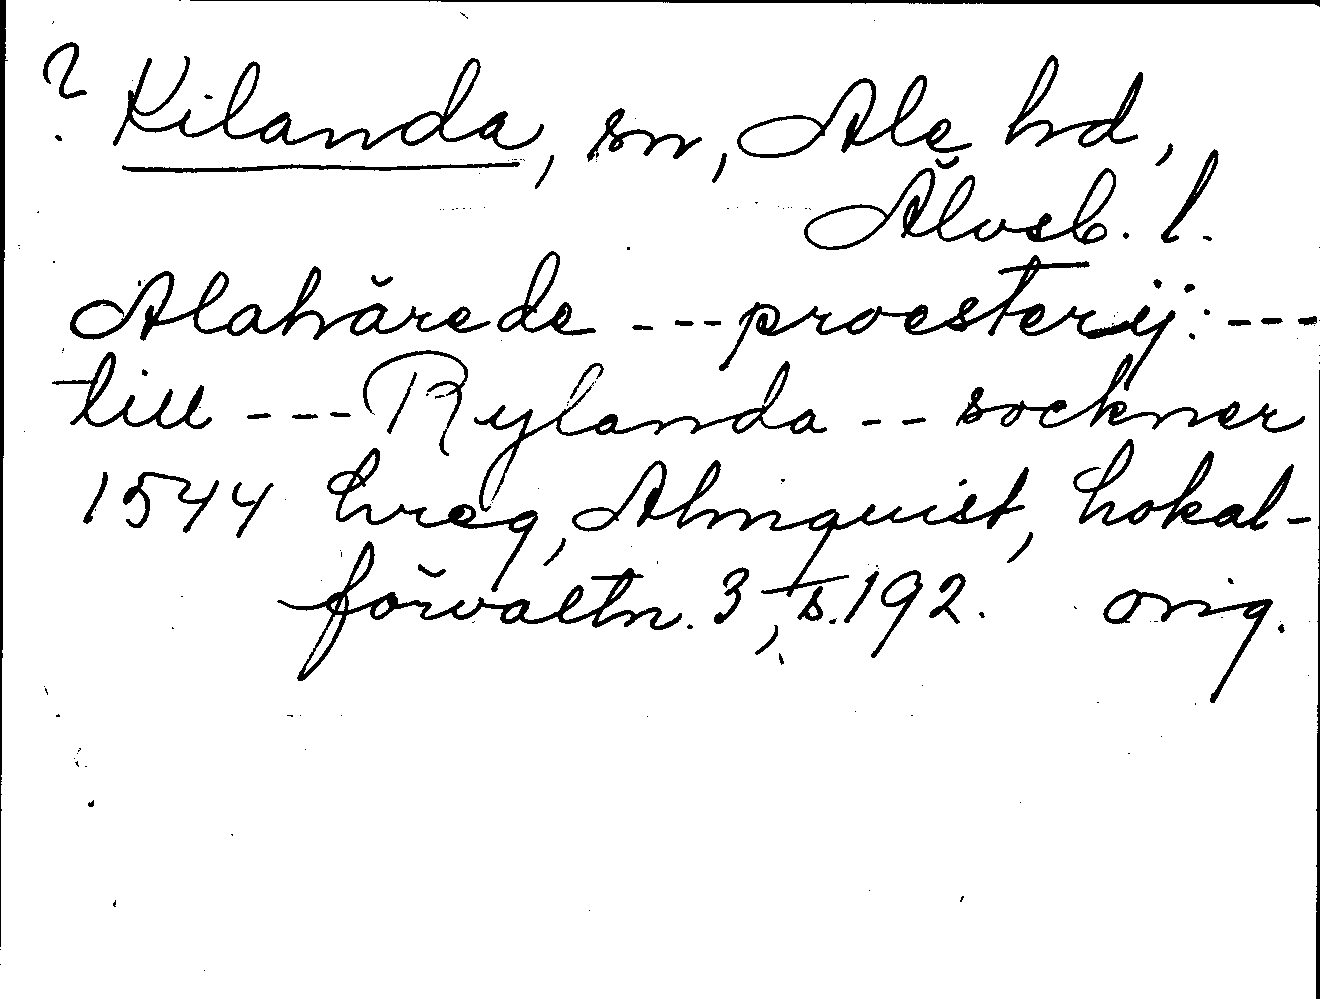 ? Kilanda, sn, Ale hd,
Älvsb. l.
Alahärede --- proesterij: ---
till --- Rylanda -- sockner
1544 Lvreg, Almquist, Lokal-
förvaltn. 3, s. 192. orig.